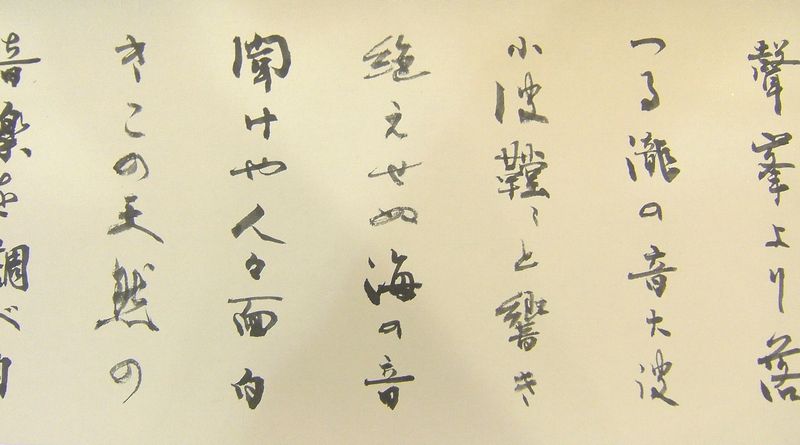 聲峯より落
つる瀧の音大波
小波鞺〻と響き
絶えせぬ海の音
聞けや人々面白
きこの天然の
音楽を調べ自